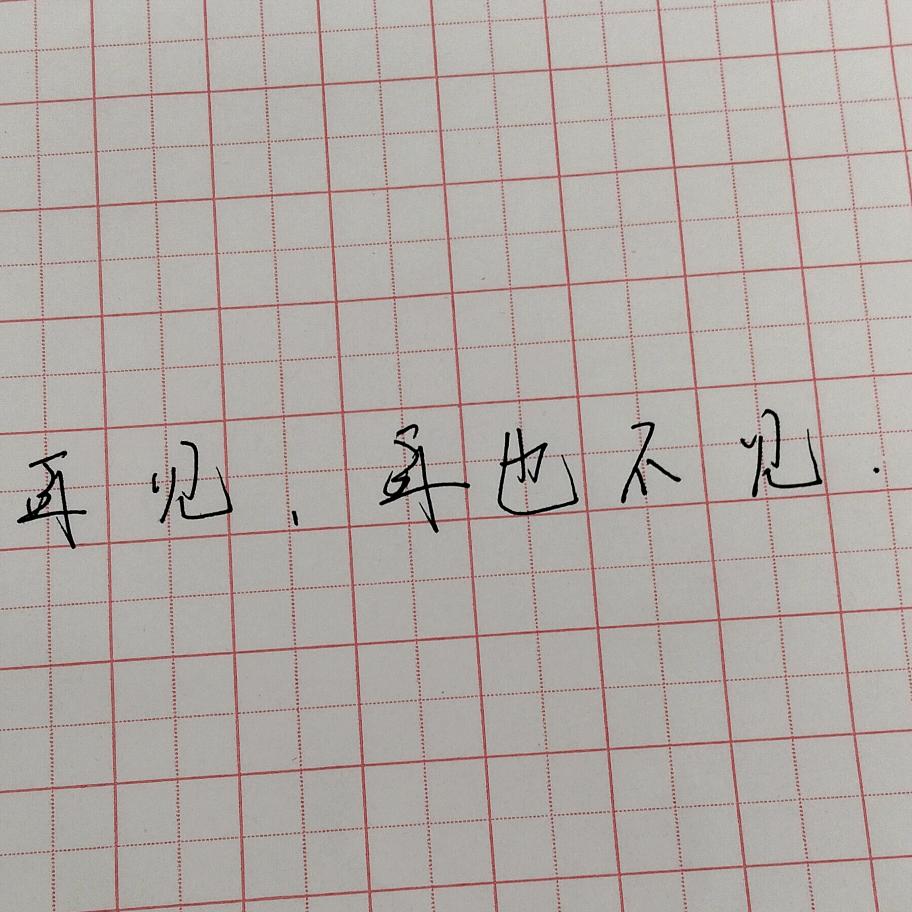 再见，再也不见.